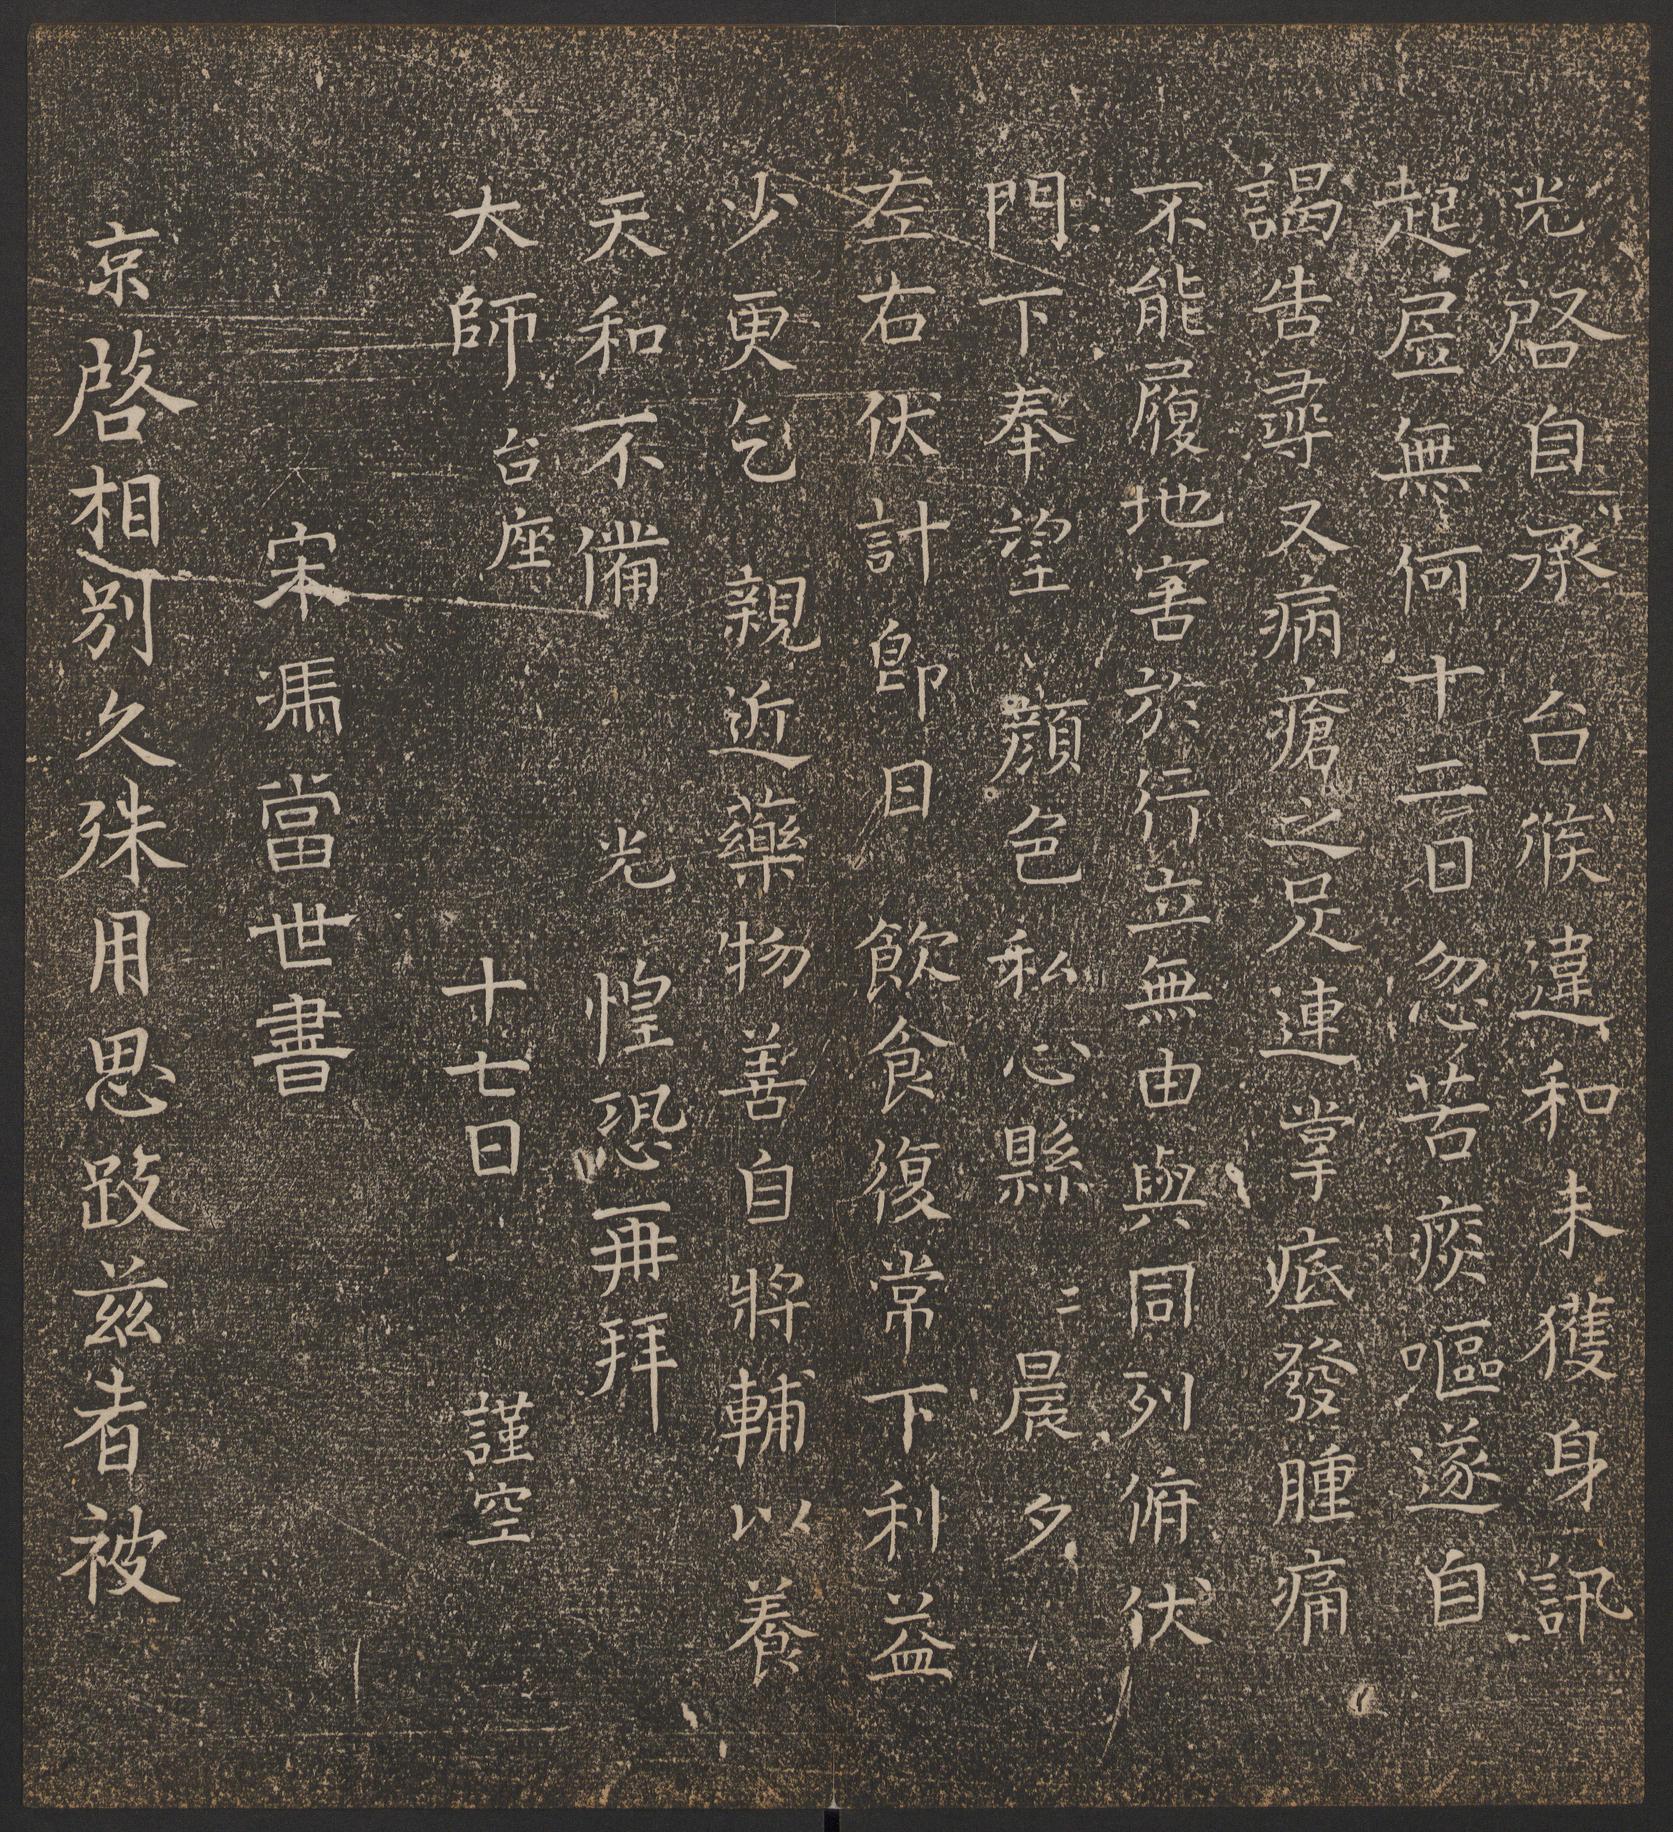 光啓自承台候違和未獲身訊
起居無何十二日忽苦痰嘔遂自
謁告尋又病瘡之足連掌底發腫痛
不能履地害於行立無由與同列俯伏
門下奉望顔色私心縣〻晨夕
左右伏計即日飲食復常下利益
少更乞親近藥物善自將輔以養
天和不備光惶恐再拜
太師台座十七日謹空
宋馮當世書
京啓相別久殊用思跂兹者被